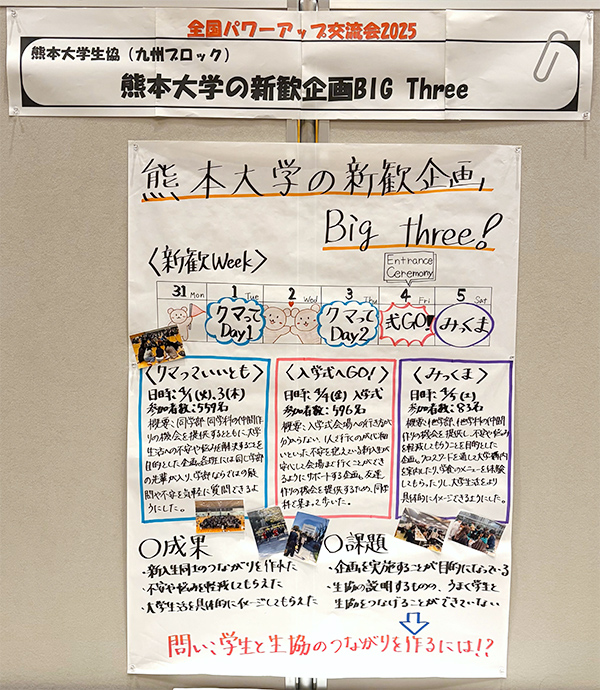 全国パワーアップ交流会2025
熊本大学生協（九州ブロック）
熊本大学の新歓企画BIG Three
熊本大学の新歓企画,
Big three!
〈新歓Week〉
Entrance
Ceremony
31 Mon 1 Tue 2 Wed 3 Thu 4 Fri 5 Sat
クマって
Day1
クマって
Day2
式GO!
みっくま
〈クマっていいとも〉
日時:4/1(火),3(木)
参加者数:559名
概要:同学部同学科の仲間作
りの機会を提供するとともに、大学
生活の不安や悩みを解決することを
目的とした企画。各班には同じ学部
の先輩が入り、学部ならではの疑
問や不安を気軽に質問できるよ
うにした。
〈入学式へGO!〉
日時:4/4(金)入学式
参加者数:596名
概要:入学式会場への行き方が
分からない、1人で行くのが心細
いといった不安を抱えている新入生が
安心して会場まで行くことができ
るようにサポートする企画。友達
作りの機会を提供するため、同学
科で集まって歩いた。
〈みっくま〉
日時:4/5(土)
参加者数:83名
概要:他学部、他学科の仲間
作りの機会を提供し、不安や悩み
を軽減してもらうことを目的とした
企画。クロスワードを通して大学構内
を案内したり、学食のメニューを体験
してもらったりし、大学生活をより
具体的にイメージできるようにした。
○成果
・新入生同士のつながりを作れた
・不安や悩みを軽減してもらえた
・大学生活を具体的にイメージしてもらえた
○課題
・企画を実施することが目的になっている
・生協の説明するものの、うまく学生と
生協をつなげることができていない
問い:学生と生協のつながりを作るには!?